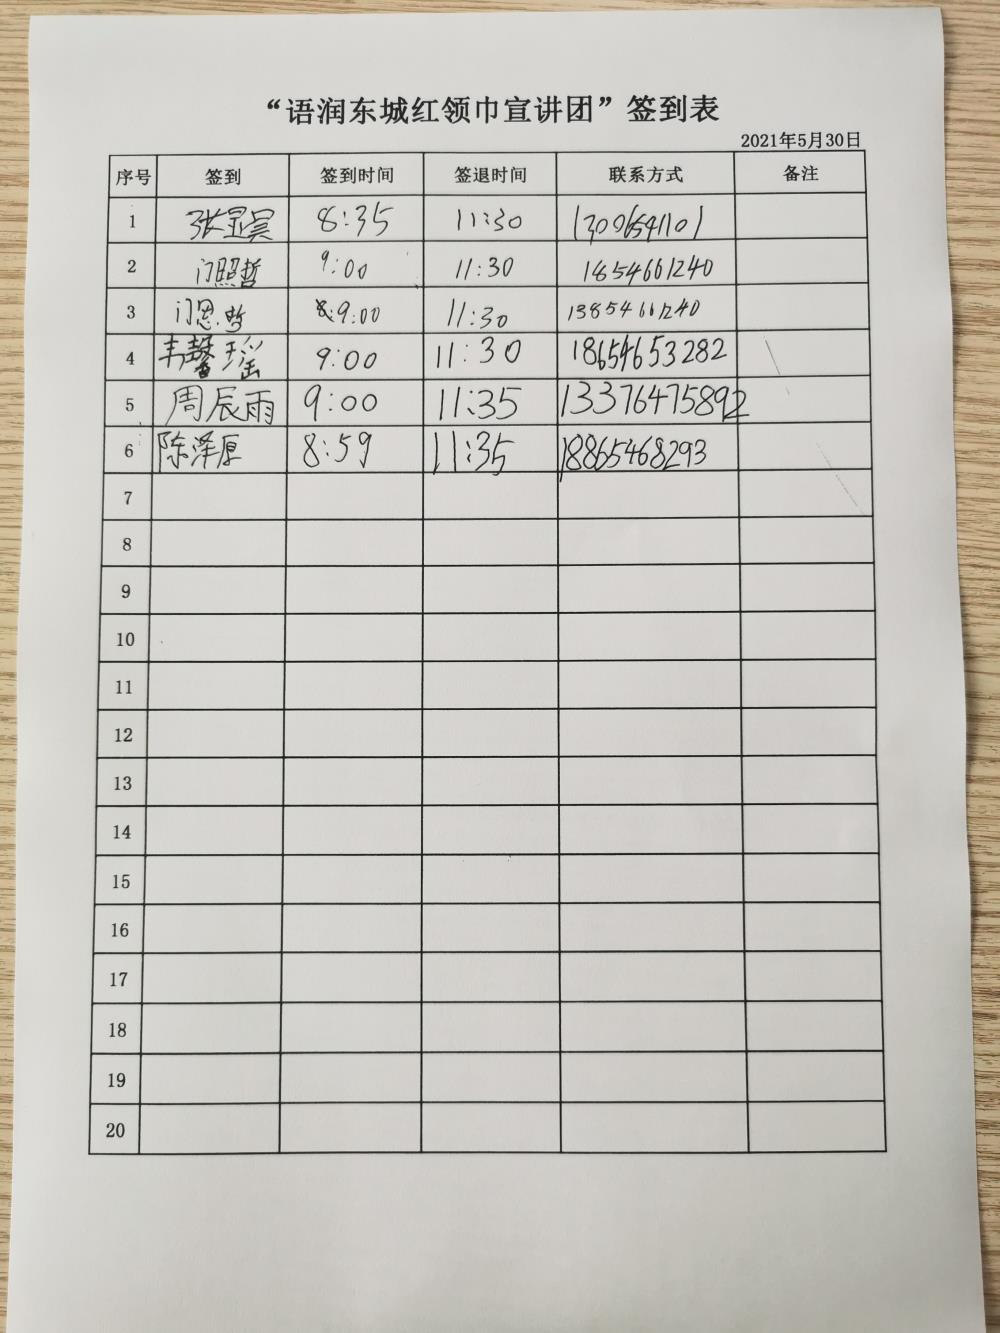 “语润东城红领巾宣讲团”签到表
2021年5月30日
序号 签到 签到时间 签退时间 联系方式 备注
1 张显昊 8:35 11:30
2 门照哲 9:00 11:30 1854661240
3 门恩哲 9:00 11:30 13854661240
4 韦馨瑶 9:00 11:30 18654653282
5 周辰雨 9:00 11:35 13376475892
6 陈泽原 8:59 11:35 18865468293
7
8
9
10
11
12
13
14
15
16
17
18
19
20